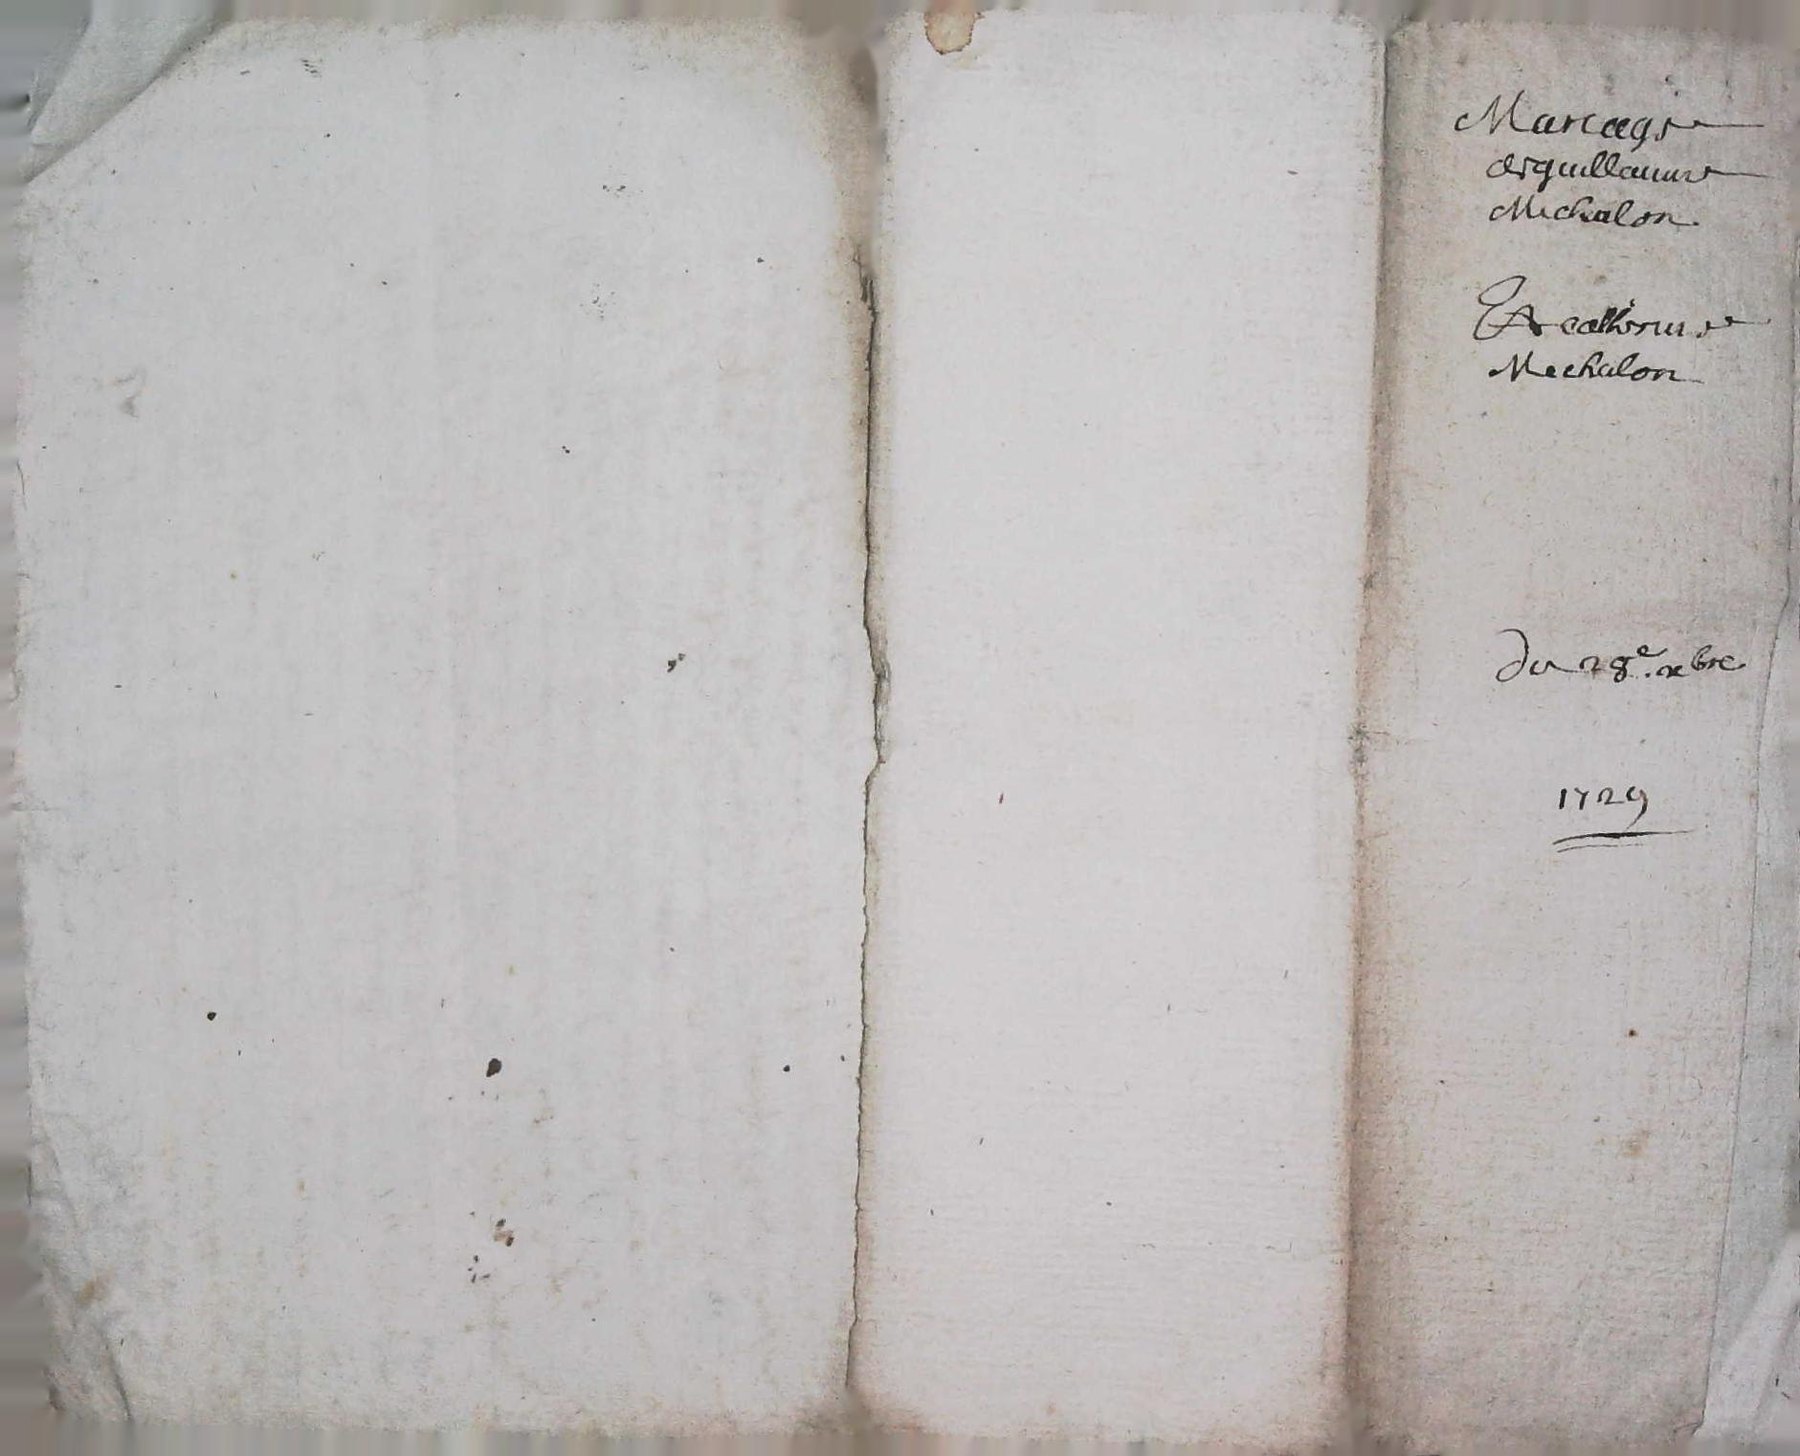 Mariage
de guillaume
Michalon
Et catherine
Mechalon
Du 28e. xbre
1729